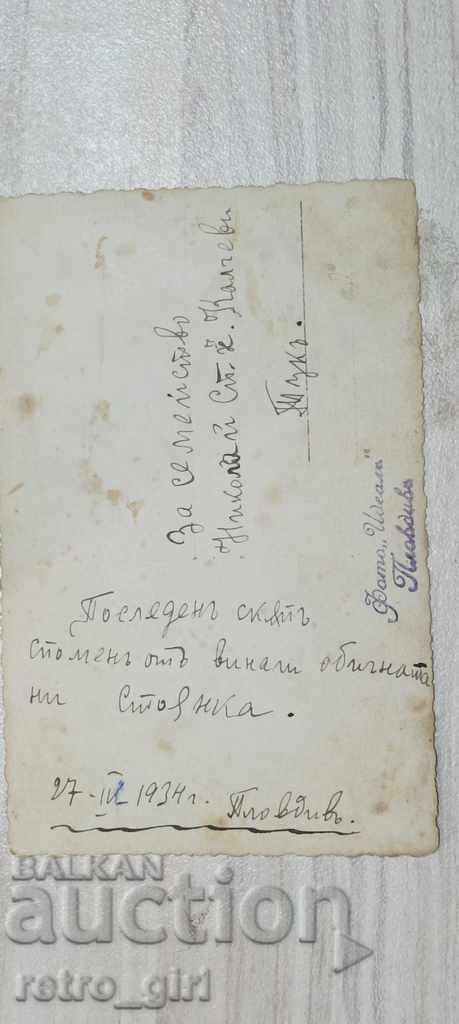 За семейство
Николай Ст. х. Калчеви
Тукъ.
Фото „Идеалъ"
Пловдивъ
Последенъ скѫпъ
споменъ отъ винаги обичната
ни Стоянка.
27-IV 1934 г. Пловдивъ.
БАЛКАН
auction
retro_girl